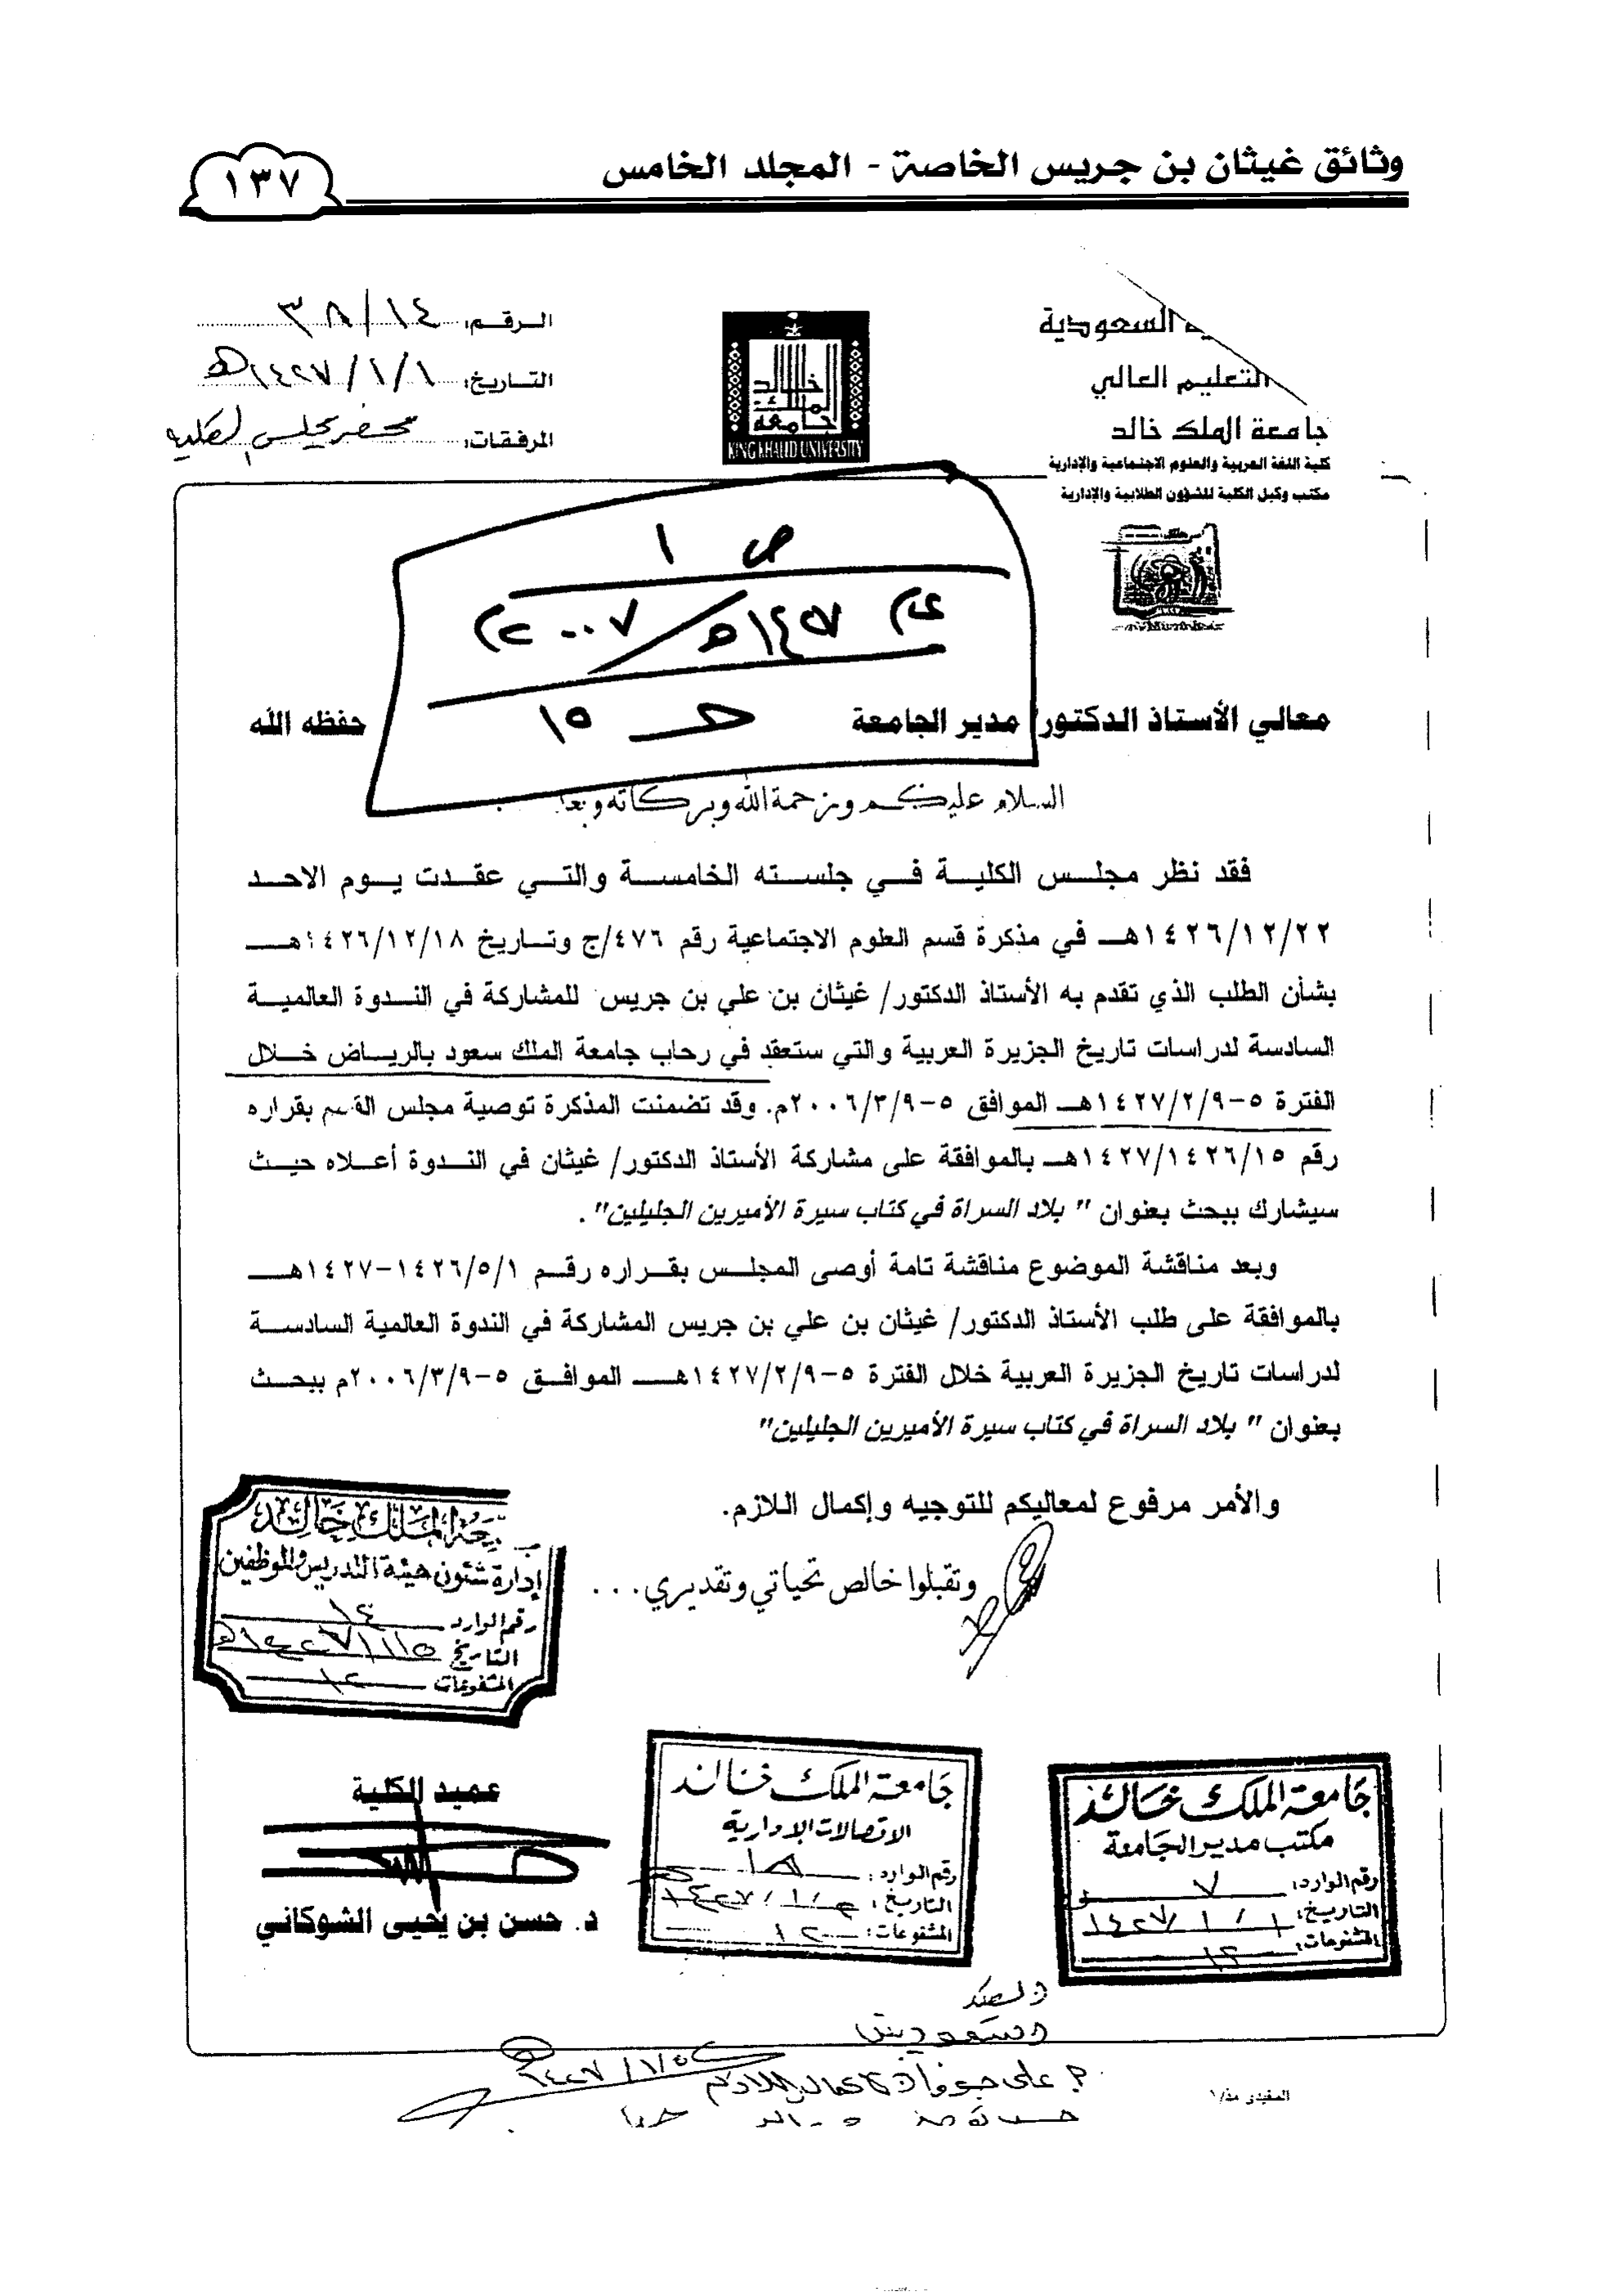 وثائق غيثان بن جريس الخاصة - المجلد الخامس
١٣٧
ية السعودية
التعليم العالي
جامعة الملك خالد
كلية اللغة العربية والعلوم الاجتماعية والإدارية
مكتب وكيل الكلية للشؤون الطلابية والإدارية
خالد
الملك
جامعة
KING KHALID UNIVERSITY
الرقم: ٣٨/١٤
التاريخ: ١٤٢٧/١/١هـ
المرفقات: محضر مجلس الكلية
ص ١
١٤٢٧هـ / ٢٠٠٧م
١٥
معالي الأستاذ الدكتور/ مدير الجامعة حفظه الله
السلام عليكم ورحمة الله وبركاته وبعد
فقد نظر مجلس الكلية في جلسته الخامسة والتي عقدت يوم الاحد
١٤٢٦/١٢/٢٢هـ في مذكرة قسم العلوم الاجتماعية رقم ٤٧٦/ج وتاريخ ١٤٢٦/١٢/١٨هـ
بشأن الطلب الذي تقدم به الأستاذ الدكتور/ غيثان بن علي بن جريس للمشاركة في الندوة العالمية
السادسة لدراسات تاريخ الجزيرة العربية والتي ستعقد في رحاب جامعة الملك سعود بالرياض خلال
الفترة ٥-١٤٢٧/٢/٩هـ الموافق ٥-٢٠٠٦/٣/٩م. وقد تضمنت المذكرة توصية مجلس القسم بقراره
رقم ١٤٢٧/١٤٢٦/١٥هـ بالموافقة على مشاركة الأستاذ الدكتور/ غيثان في الندوة أعلاه حيث
سيشارك ببحث بعنوان " بلاد السراة في كتاب سيرة الأميرين الجليلين".
وبعد مناقشة الموضوع مناقشة تامة أوصى المجلس بقراره رقم ١٤٢٦/٥/١-١٤٢٧هـ
بالموافقة على طلب الأستاذ الدكتور/ غيثان بن علي بن جريس المشاركة في الندوة العالمية السادسة
لدراسات تاريخ الجزيرة العربية خلال الفترة ٥-١٤٢٧/٢/٩هـ الموافق ٥-٢٠٠٦/٣/٩م ببحث
بعنوان " بلاد السراة في كتاب سيرة الأميرين الجليلين"
والأمر مرفوع لمعاليكم للتوجيه وإكمال اللازم.
وتقبلوا خالص تحياتي وتقديري...
جامعة الملك خالد
إدارة شئون هيئة التدريس والموظفين
رقم الوارد ١٤
التاريخ ١٤٢٧/١/٥هـ
المشفوعات ١٢
عميد الكلية
د. حسن بن يحيى الشوكاني
جامعة الملك خالد
الاتصالات الإدارية
رقم الوارد:
التاريخ: ١٤٢٧/١/
المشفوعات: ١٢
جامعة الملك خالد
مكتب مدير الجامعة
رقم الوارد: ٧
التاريخ: ١٤٢٧/١/١
المشفوعات: ١٢
١٤٢٧/١/٥هـ